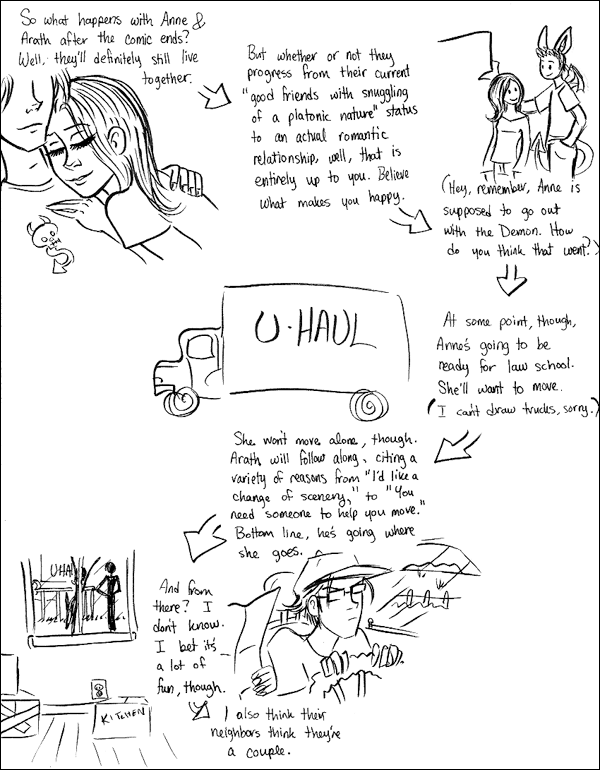 So what happens with Anne &
Arath after the comic ends?
Well, they'll definitely still live
together.
But whether or not they
progress from their current
"good friends with snuggling
of a platonic nature" status
to an actual romantic
relationship, well, that is
entirely up to you. Believe
what makes you happy.
(Hey, remember, Anne is
supposed to go out
with the Demon. How
do you think that went?)
At some point, though,
Anne's going to be
ready for law school.
She'll want to move.
(I can't draw trucks, sorry.)
U-HAUL
She won't move alone, though.
Arath will follow along, citing a
variety of reasons from "I'd like a
change of scenery," to "You
need someone to help you move."
Bottom line, he's going where
she goes.
UHA
KITCHEN
And from
there? I
don't know.
I bet it's
a lot of
fun, though.
I also think their
neighbors think they're
a couple.